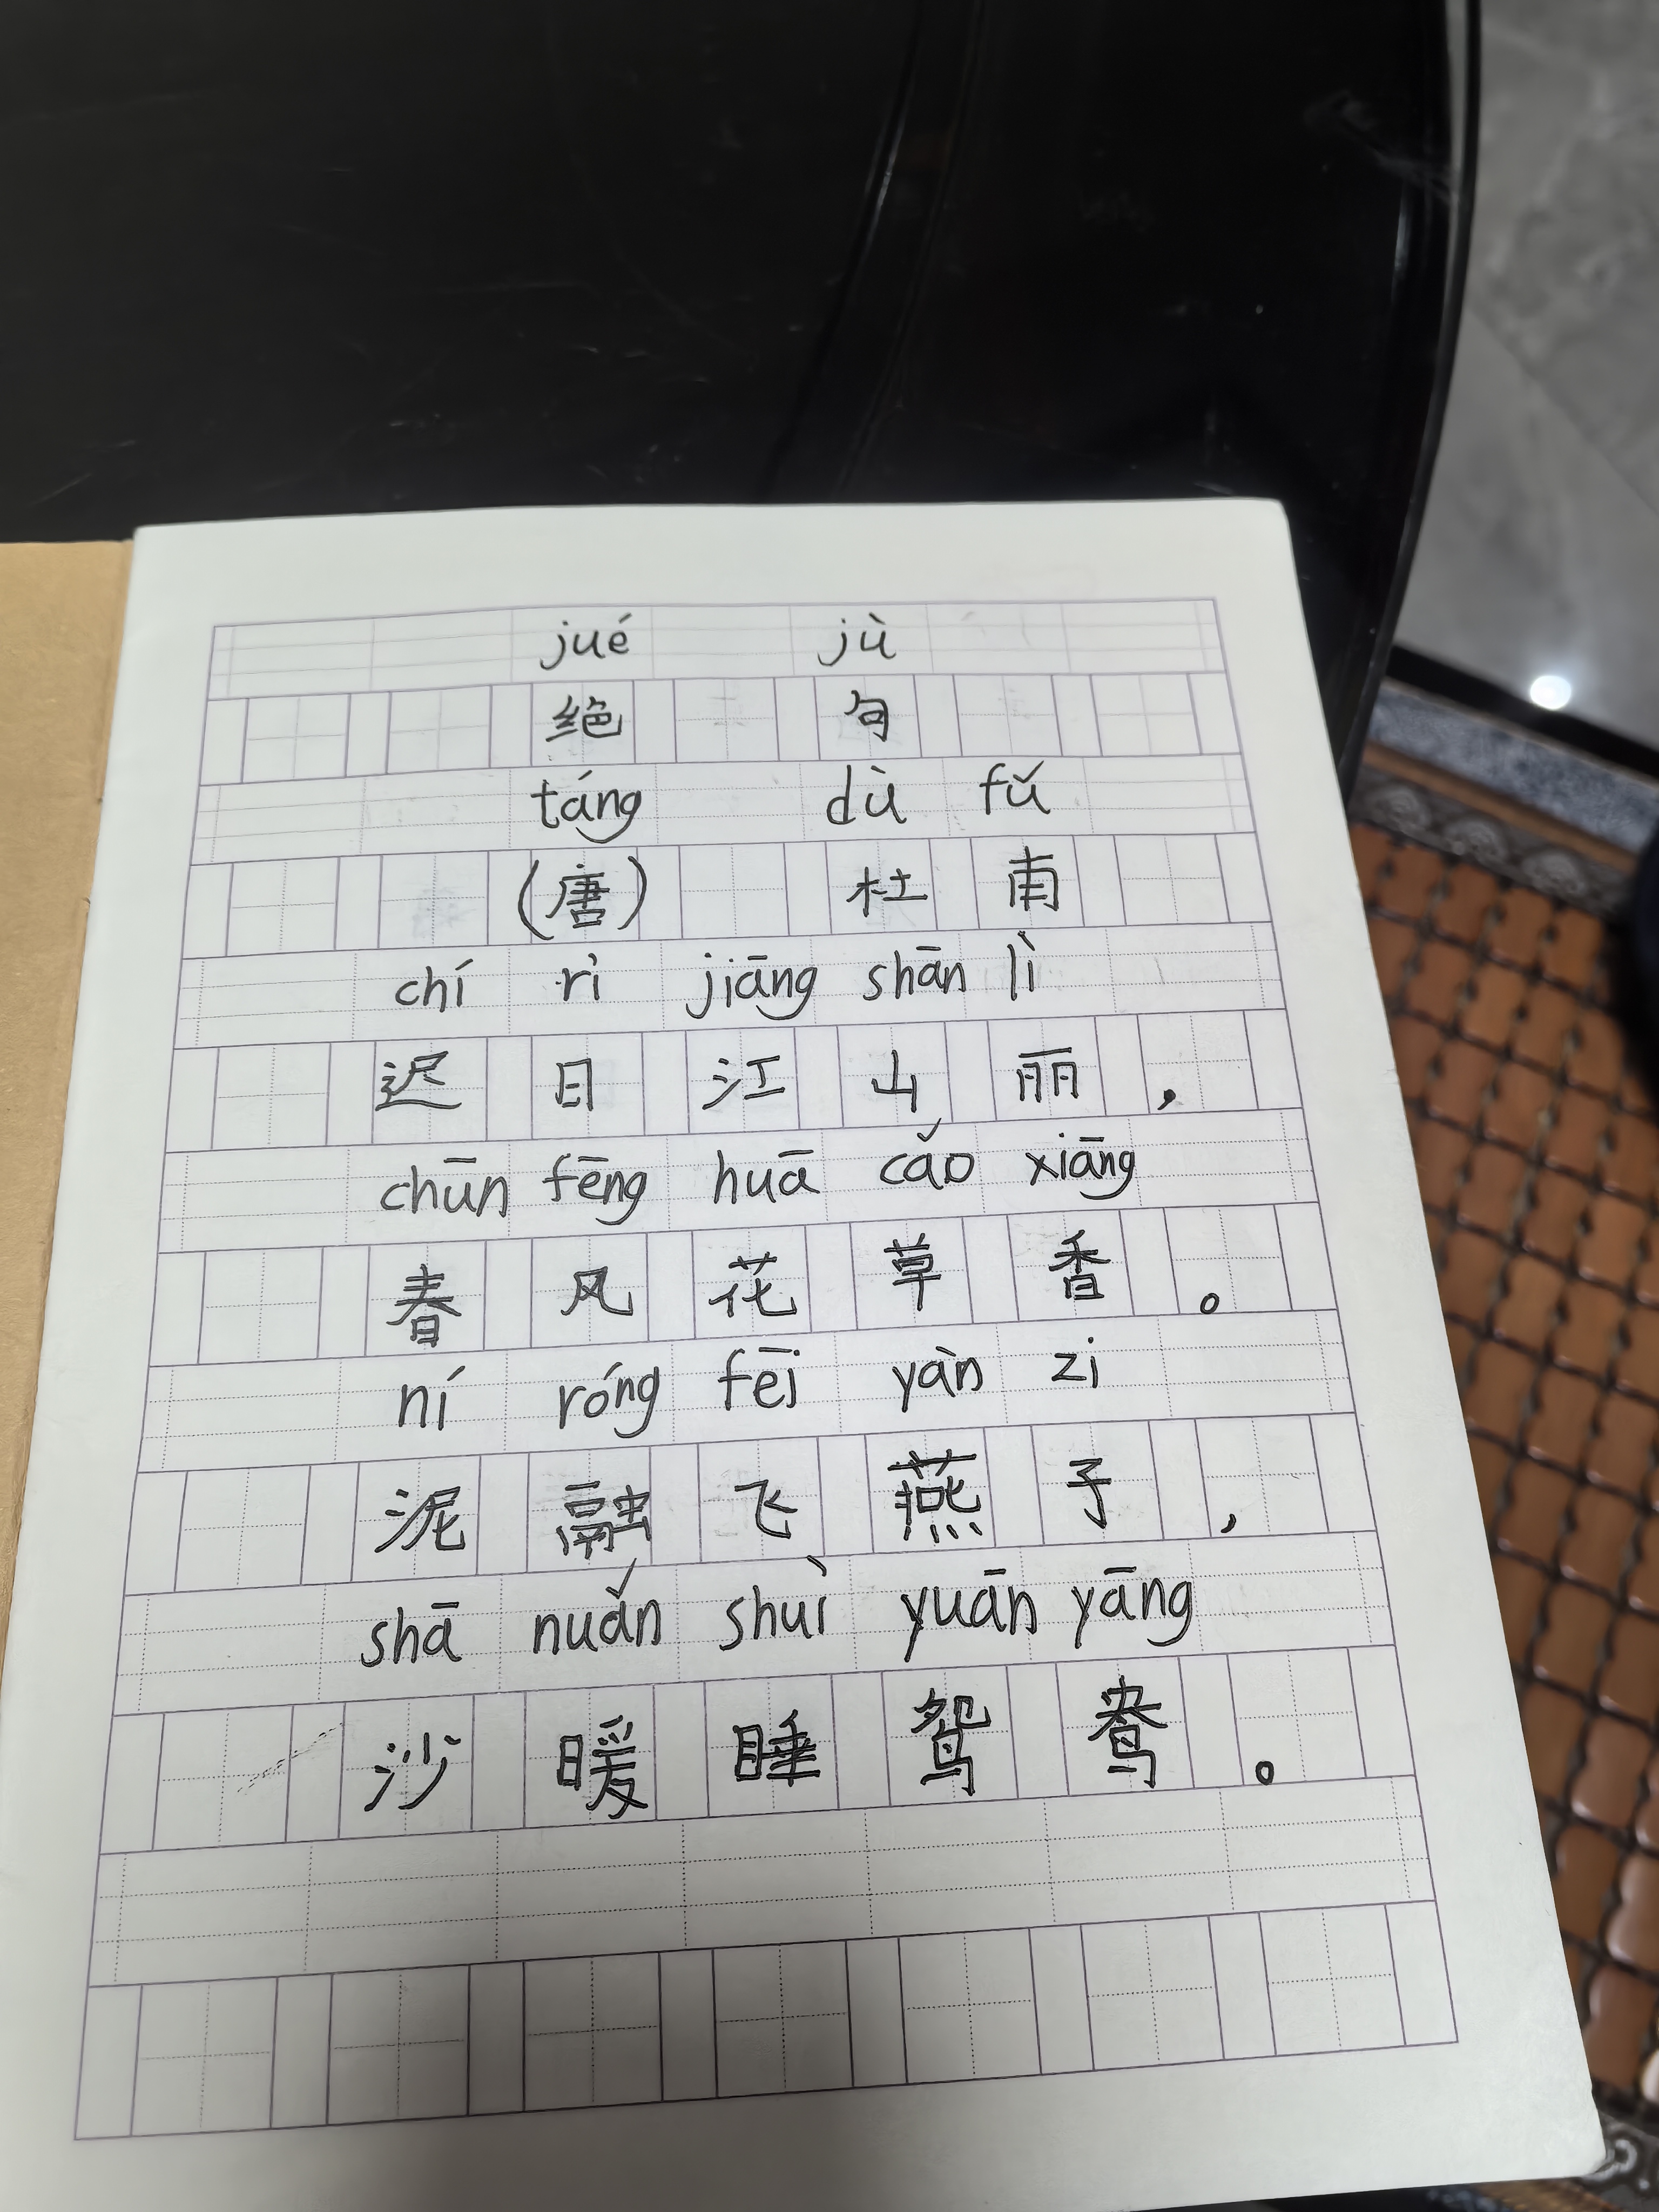 jué jù
绝 句
táng dù fǔ
(唐) 杜 甫
chí rì jiāng shān lì
迟 日 江 山 丽 ,
chūn fēng huā cǎo xiāng
春 风 花 草 香 。
ní róng fēi yàn zi
泥 融 飞 燕 子 ,
shā nuǎn shuì yuān yāng
沙 暖 睡 鸳 鸯 。